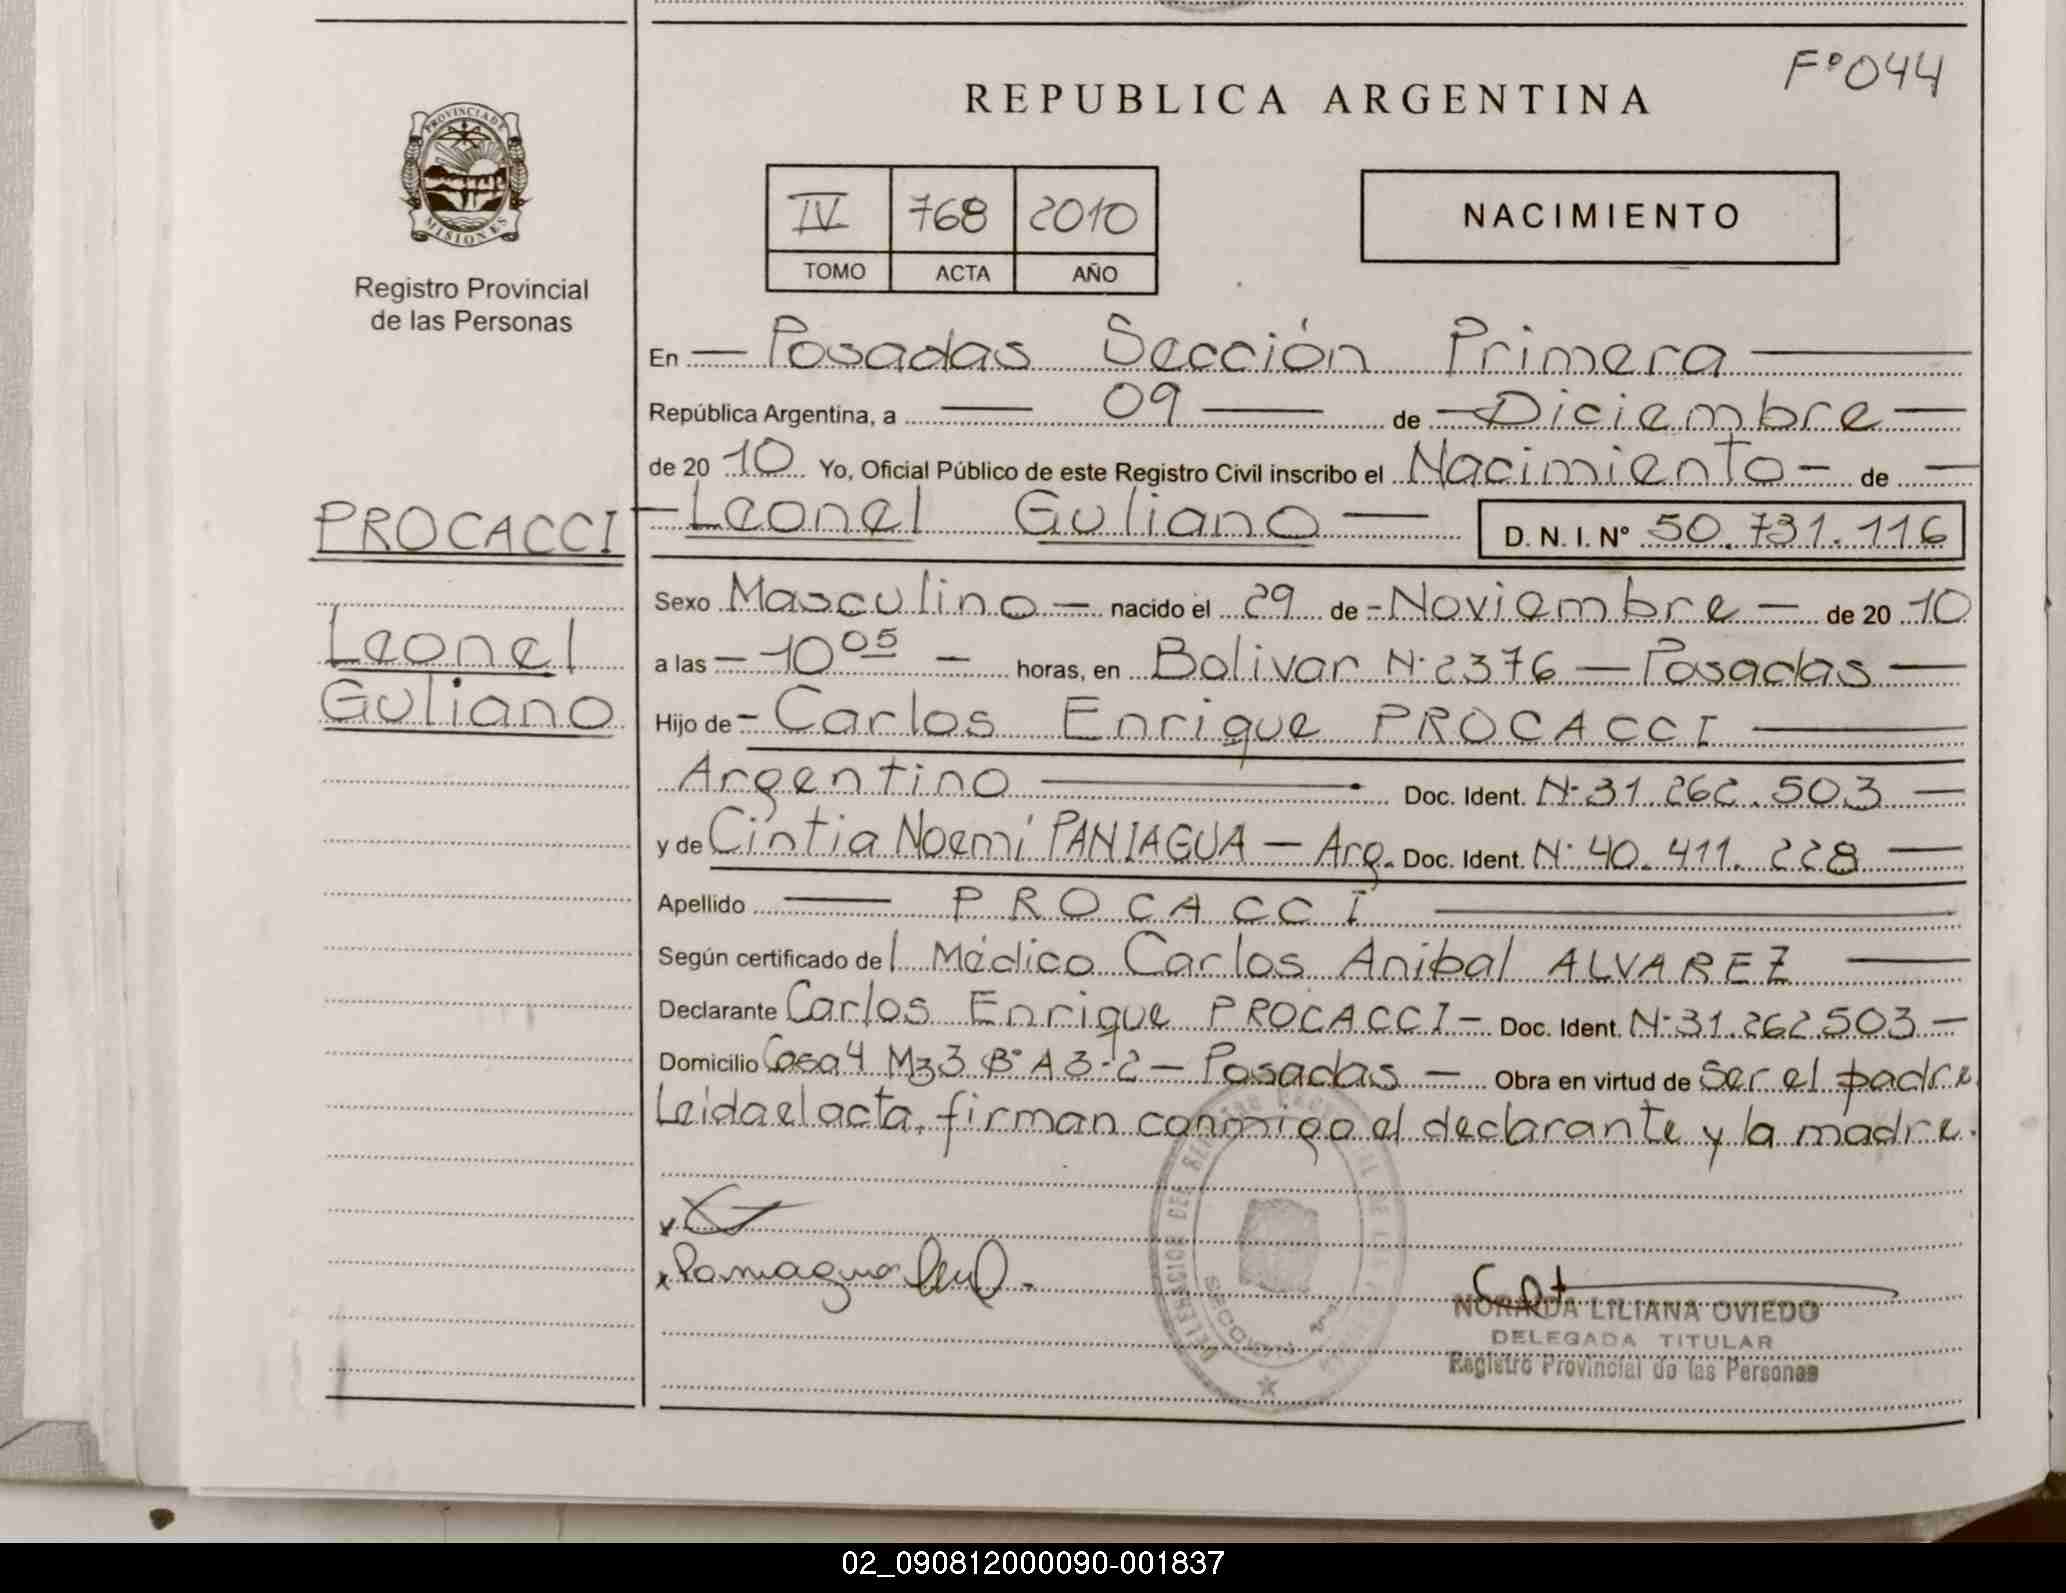 F° 044
REPUBLICA ARGENTINA
PROVINCIA DE
MISIONES
Registro Provincial
de las Personas
IV 768 2010
TOMO ACTA AÑO
NACIMIENTO
En Posadas Sección Primera
República Argentina, a 09 de Diciembre
de 20 10 Yo, Oficial Público de este Registro Civil inscribo el Nacimiento de
PROCACCI
Leonel
Guliano
Leonel Guliano D. N. I. N° 50.731.116
Sexo Masculino nacido el 29 de Noviembre de 20 10
a las 10 05 horas, en Bolivar N° 2376 — Posadas
Hijo de Carlos Enrique PROCACCI
Argentino Doc. Ident. N° 31.262.503
y de Cintia Noemí PANIAGUA — Arg. Doc. Ident. N° 40.411.228
Apellido PROCACCI
Según certificado del Médico Carlos Anibal ALVAREZ
Declarante Carlos Enrique PROCACCI — Doc. Ident. N° 31.262.503
Domicilio Casa 4 Mz 3 B° A 3-2 — Posadas — Obra en virtud de ser el padre
Leida el acta, firman conmigo el declarante y la madre.
x
x Paniagua
SECCION 1ra
NORAIDA LILIANA OVIEDO
DELEGADA TITULAR
Registro Provincial de las Personas
02_090812000090-001837